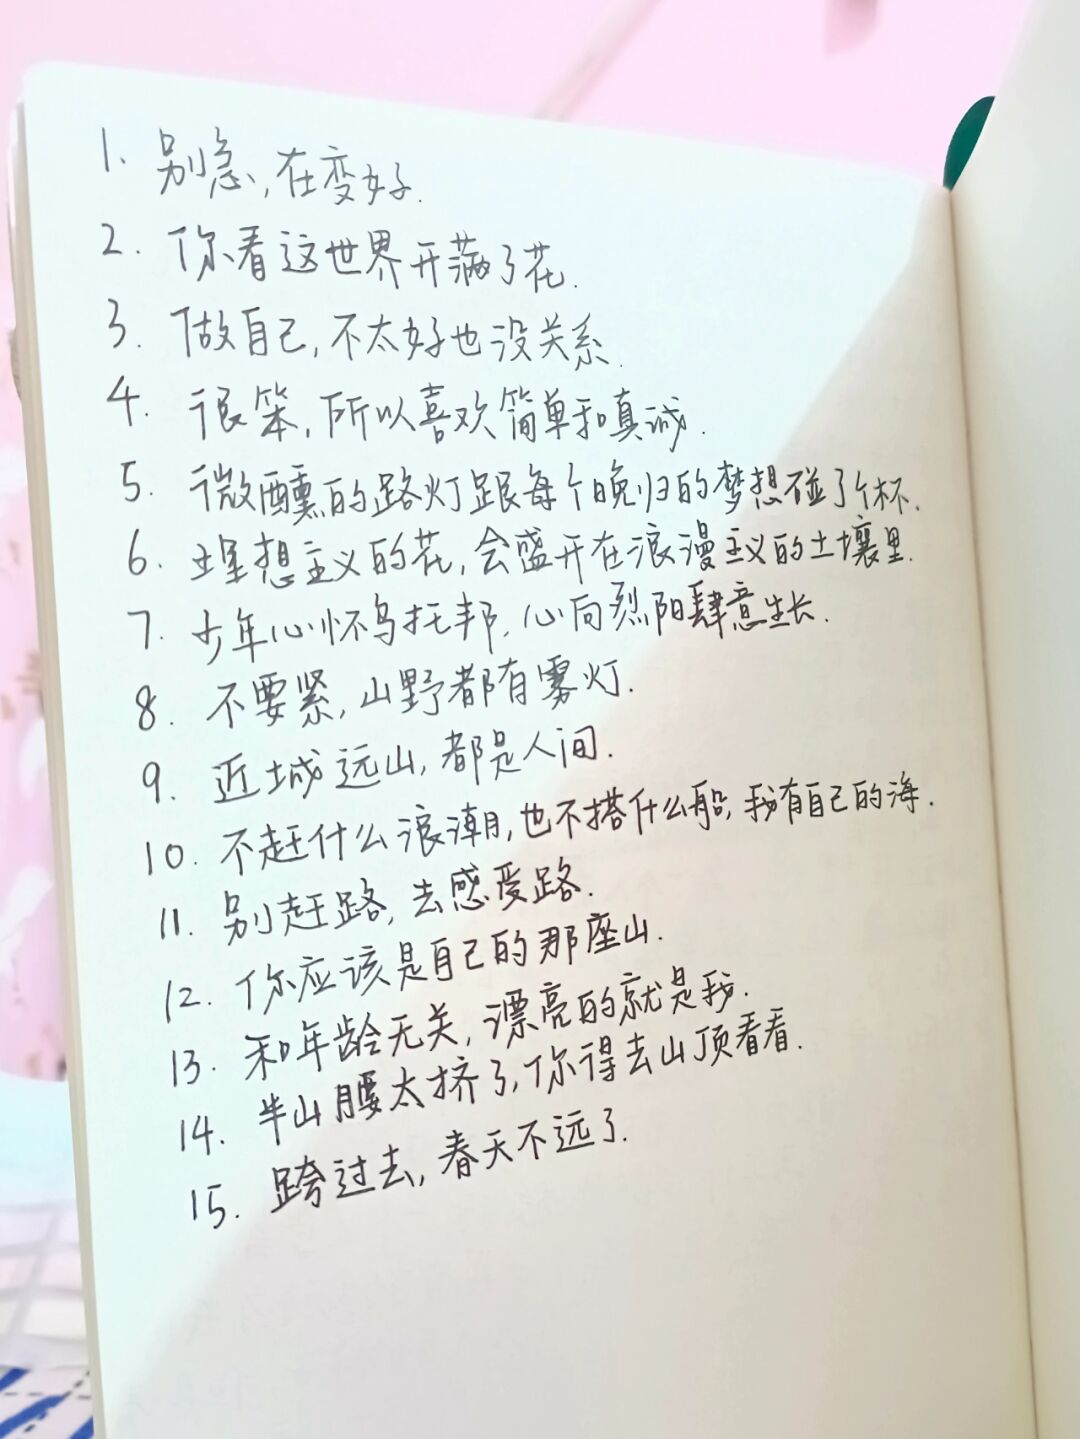 1. 别急,在变好.
2. 你看这世界开满了花.
3. 做自己,不太好也没关系.
4. 很笨,所以喜欢简单和真诚.
5. 微醺的路灯跟每个晚归的梦想碰了个杯.
6. 理想主义的花,会盛开在浪漫主义的土壤里.
7. 少年心怀乌托邦,心向烈阳肆意生长.
8. 不要紧,山野都有雾灯.
9. 近城远山,都是人间.
10. 不赶什么浪潮,也不搭什么船,我有自己的海.
11. 别赶路,去感受路.
12. 你应该是自己的那座山.
13. 和年龄无关,漂亮的就是我.
14. 半山腰太挤了,你得去山顶看看.
15. 跨过去,春天不远了.